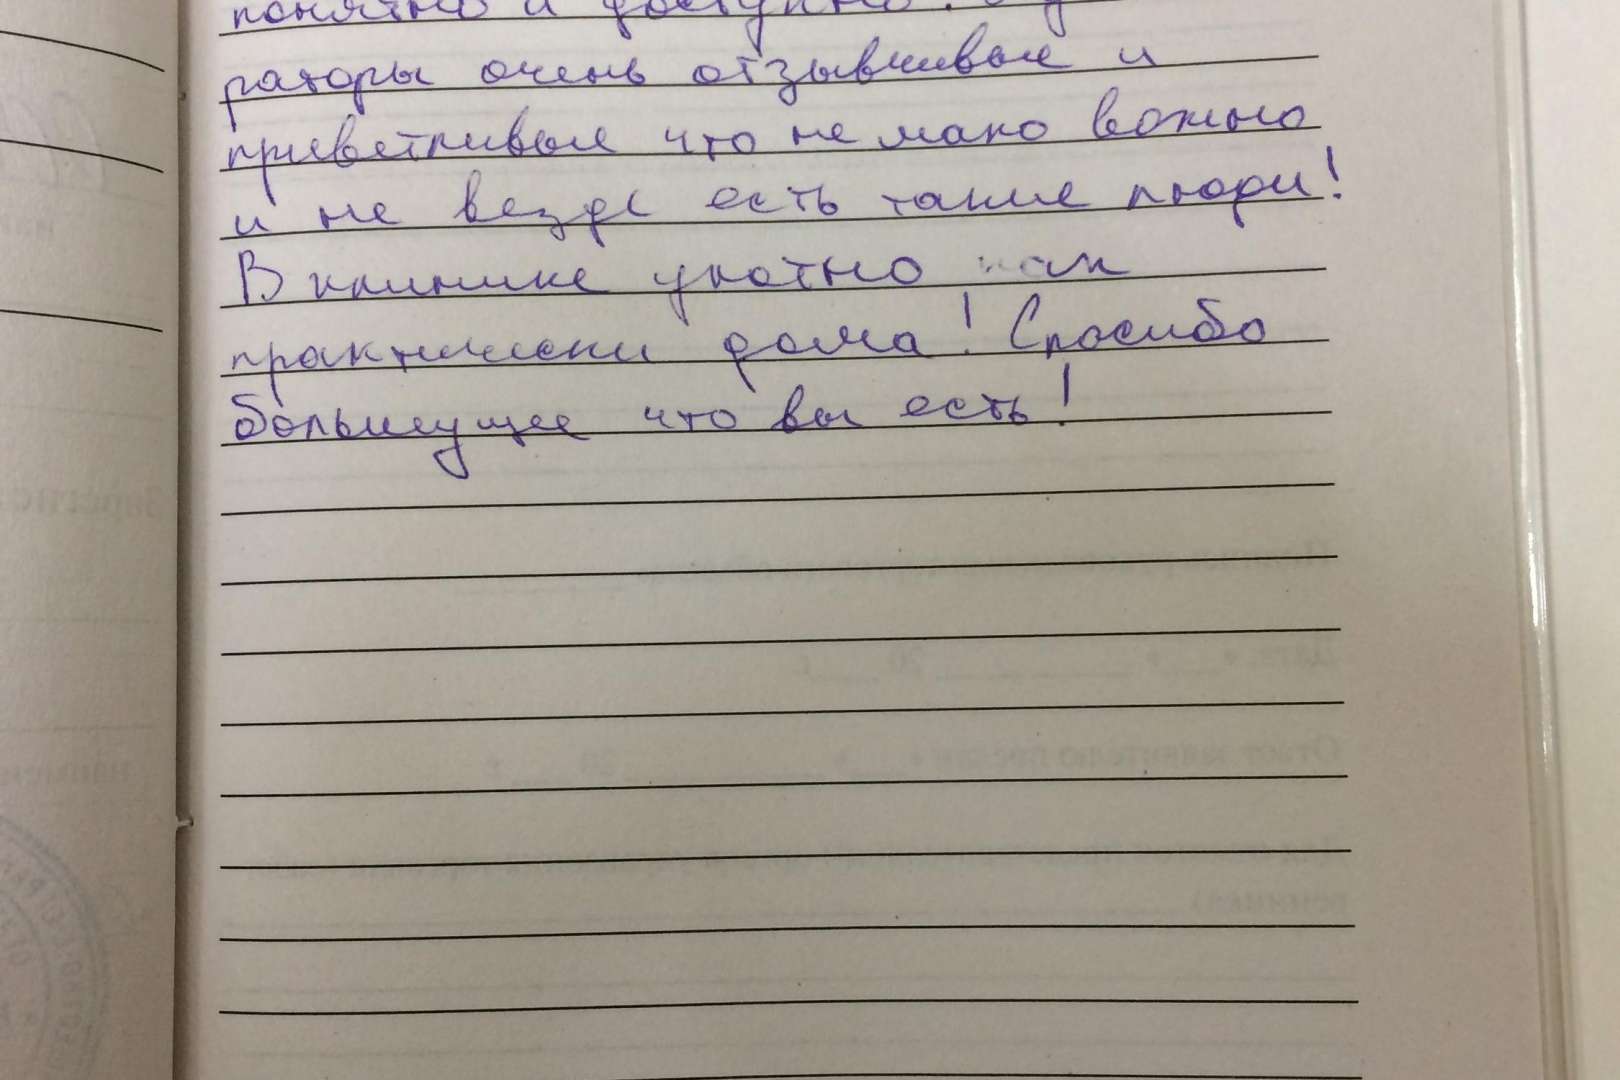 понятно и доступно.
раторы очень отзывчивые и
приветливые что не мало важно
и не везде есть такие люди!
В клинике уютно как
практически дома! Спасибо
большущее что вы есть!